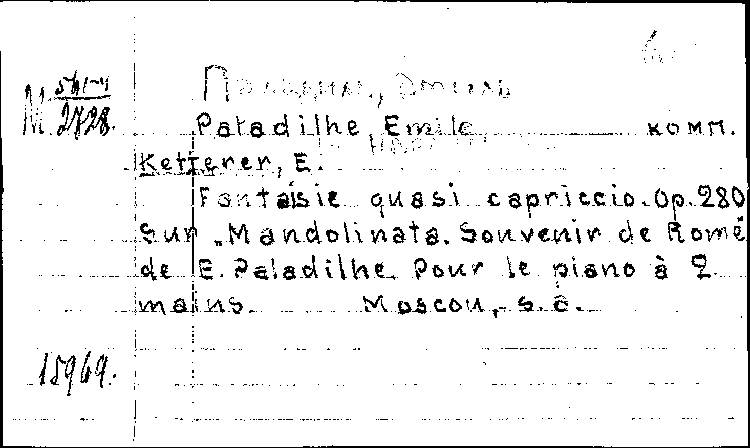 M 2728.
Paladilhe, Emile комп.
Ketterer, E.
Fantaisie quasi capriccio. Op. 280
sur „Mandolinata. Souvenir de Rome
de E. Paladilhe. Pour le piano à 2
mains. Moscou, s.a.
15969.